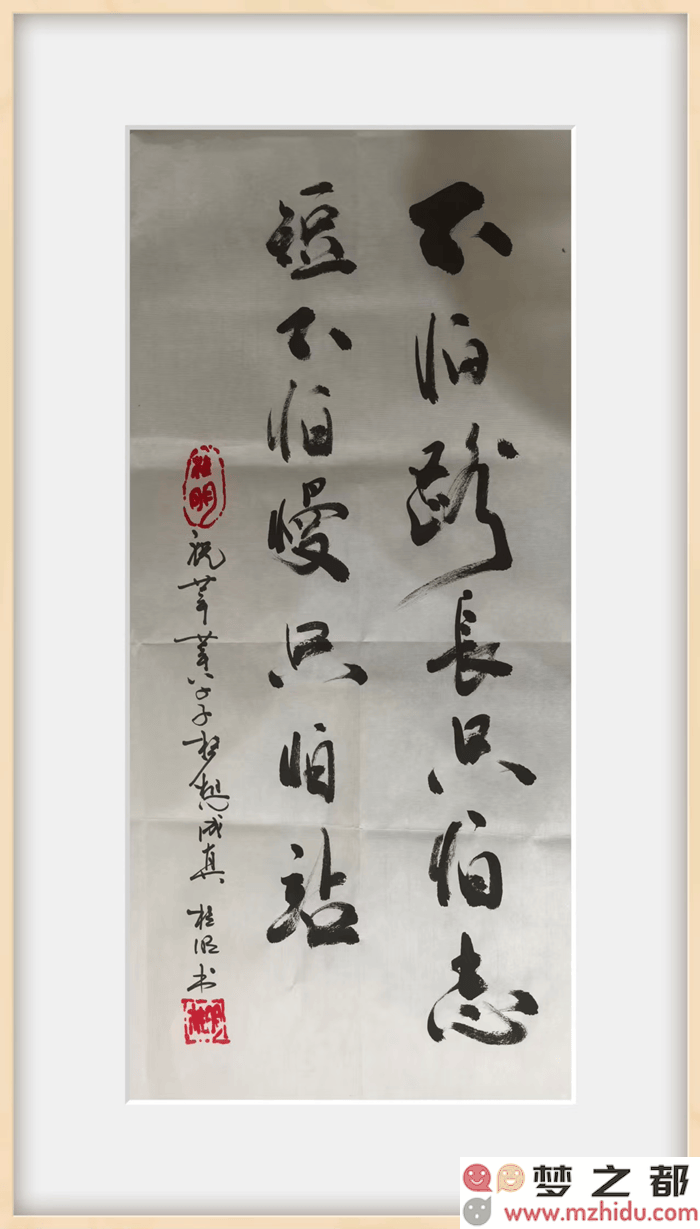 不怕路長只怕志
短不怕慢只怕站
桂明
祝莘莘学子梦想成真 桂明书
梦之都
www.mzhidu.com